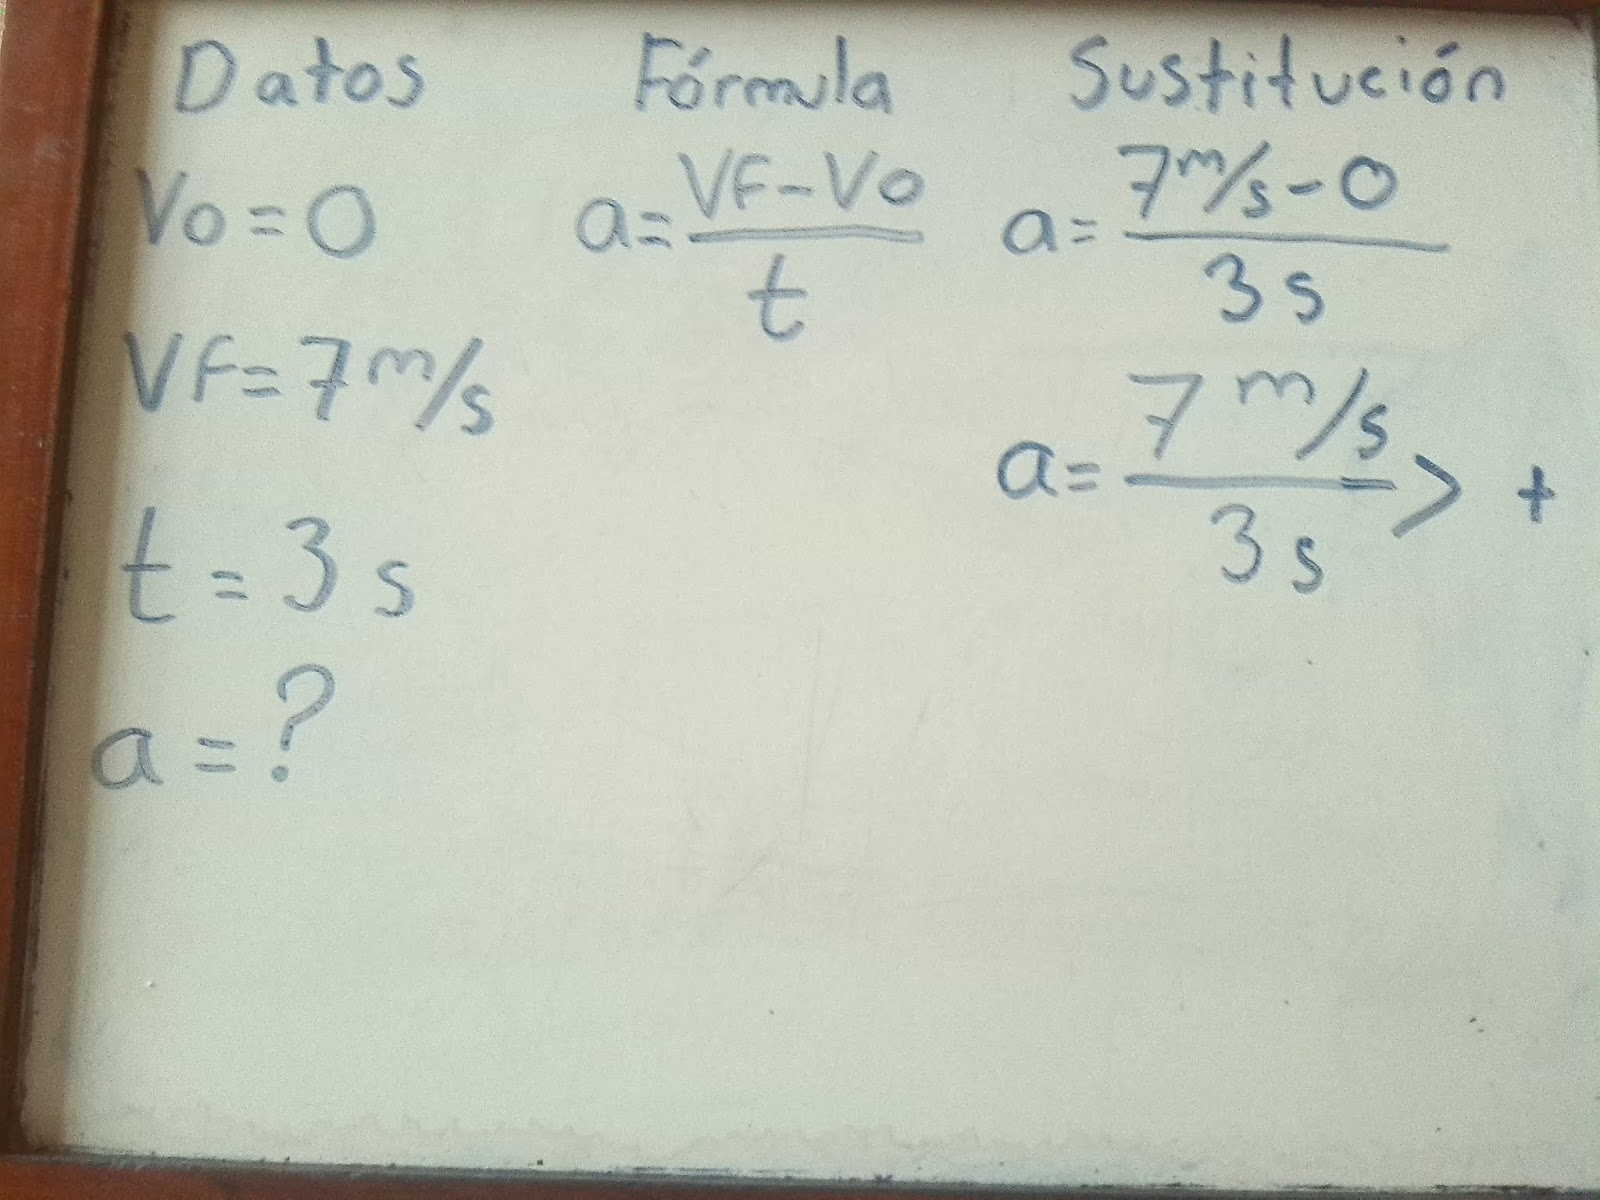 Datos Fórmula Sustitución
Vo = 0
a = VF - Vo / t
a = 7 m/s - 0 / 3 s
VF = 7 m/s
a = 7 m/s / 3 s > +
t = 3 s
a = ?